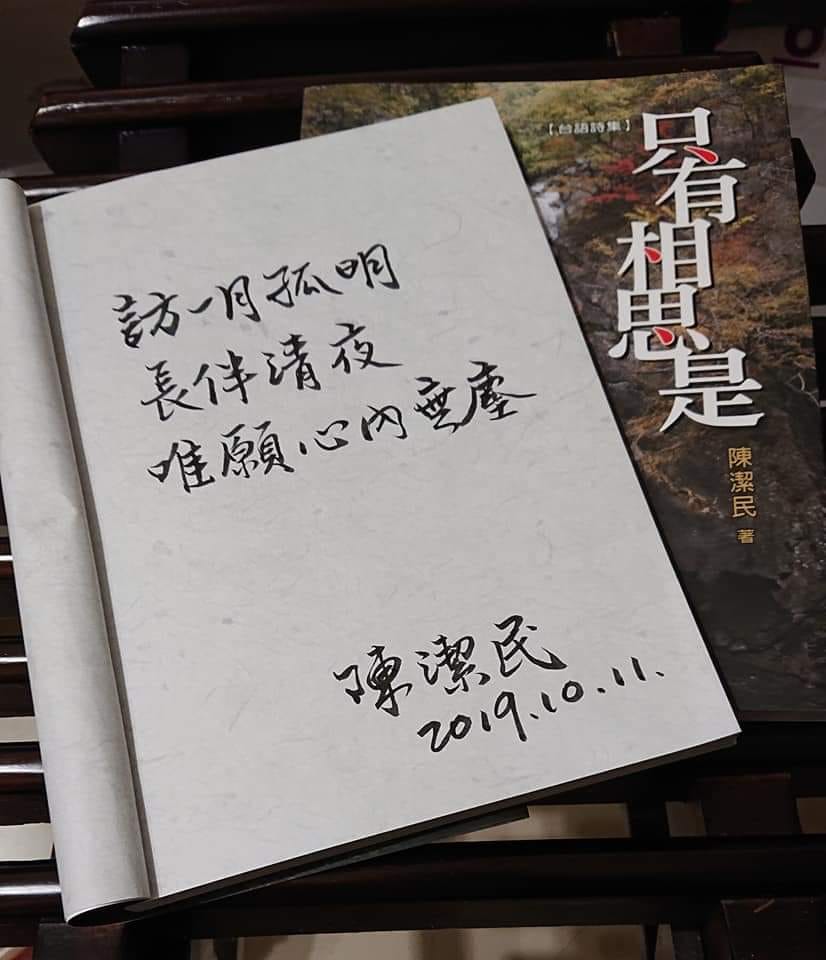 訪一月孤明
長伴清夜
唯願心內無塵
陳潔民
2019.10.11.
【台語詩集】
只有相思是
陳潔民 著